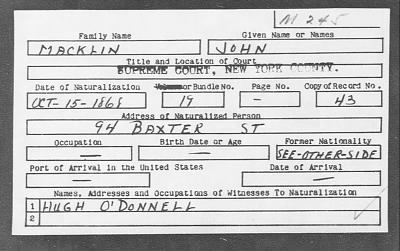 M 245
Family Name Given Name or Names
MACKLIN JOHN
Title and Location of Court
SUPREME COURT, NEW YORK COUNTY.
Date of Naturalization Volume or Bundle No. Page No. Copy of Record No.
OCT-15-1868 19 — 43
Address of Naturalized Person
94 BAXTER ST
Occupation Birth Date or Age Former Nationality
— — SEE-OTHER-SIDE
Port of Arrival in the United States Date of Arrival
— —
Names, Addresses and Occupations of Witnesses To Naturalization
1 HUGH O'DONNELL
2